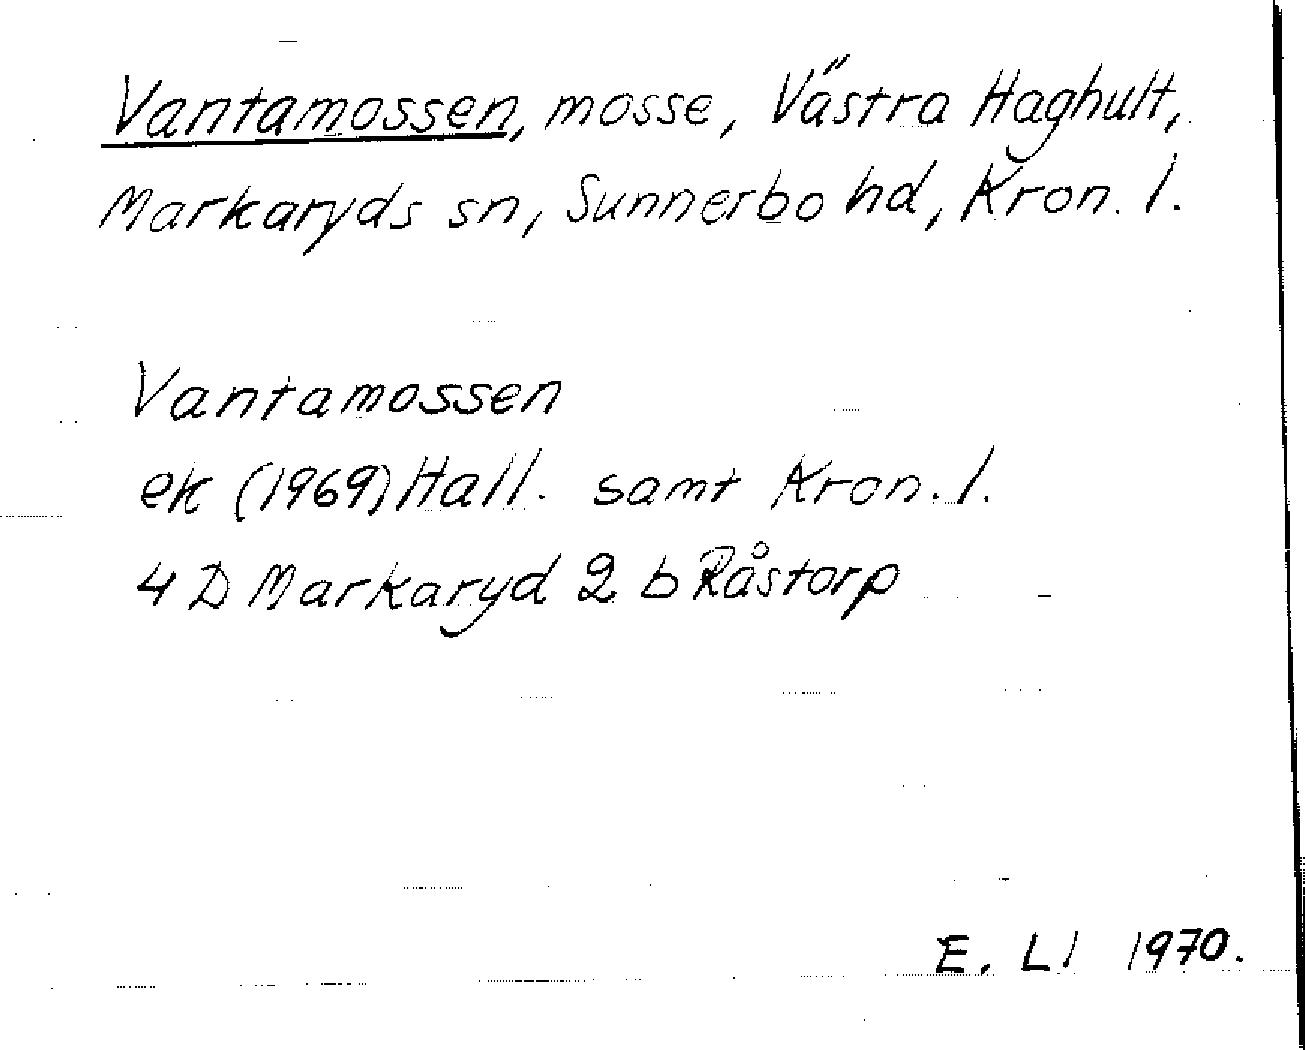 Vantamossen, mosse, Västra Haghult,
Markaryds sn, Sunnerbo hd, Kron. l.
Vantamossen
ek (1969) Hall. samt Kron. l.
4 D Markaryd 2 b Råstorp
E. Ll 1970.